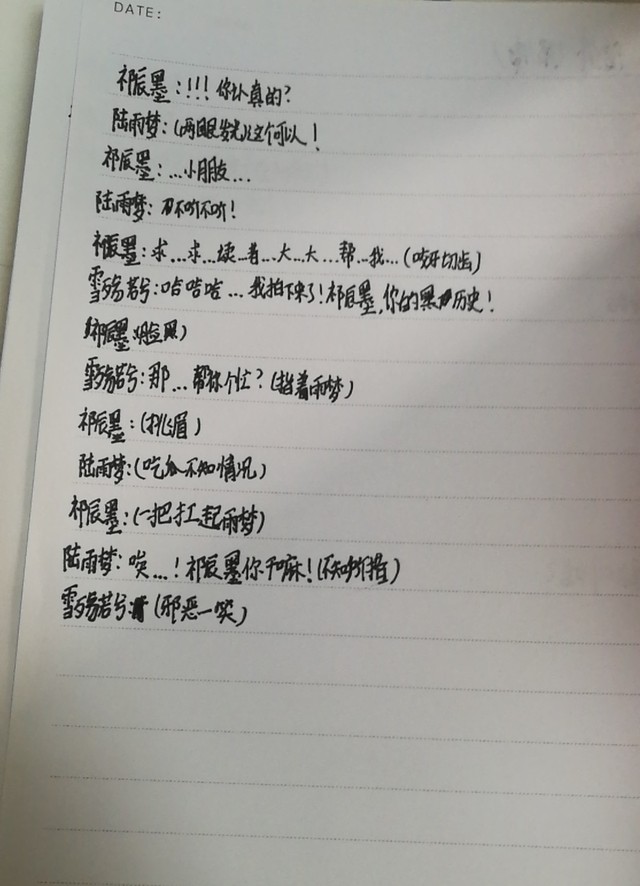 DATE:
祁辰墨:!!!你认真的?
陆雨梦:(两眼发光)这个可以!
祁辰墨:...小朋友...
陆雨梦:不听不听!
祁辰墨:求...求...读...者...大...大...帮...我...(咬牙切齿)
雪殇若兮:哈哈哈...我拍下来了!祁辰墨,你的黑历史!
(祁辰墨:脸黑)
雪殇若兮:那...帮你个忙?(指着雨梦)
祁辰墨:(挑眉)
陆雨梦:(吃瓜不知情况)
祁辰墨:(一把扛起雨梦)
陆雨梦:唉...!祁辰墨你干嘛!(不知所措)
雪殇若兮:(邪恶一笑)